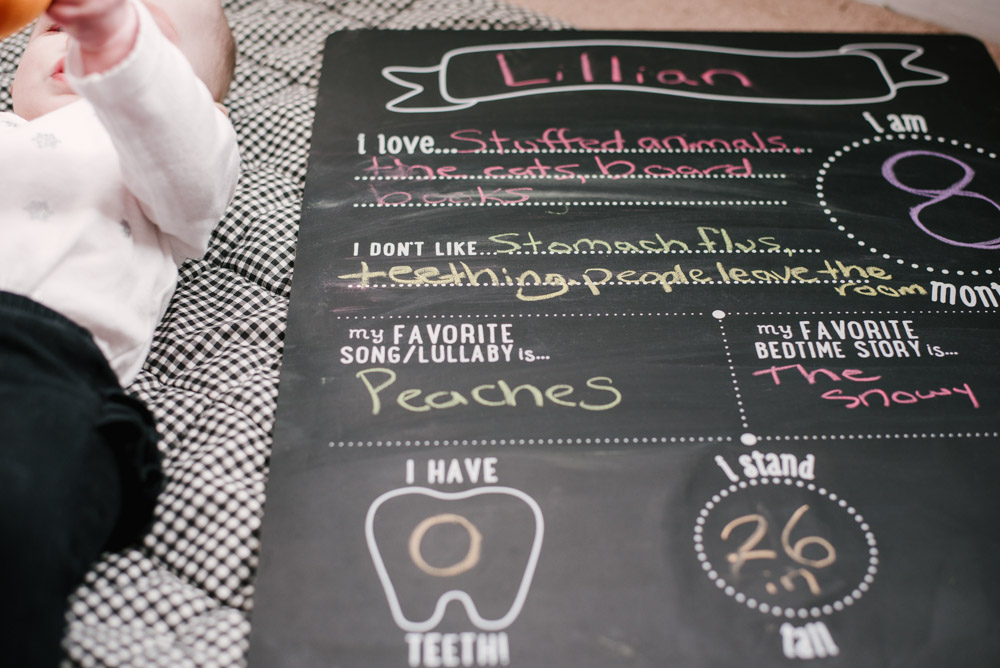 Lillian
I love... Stuffed animals,
the cats, board
books
I am
8
I DON'T LIKE... Stomach flus,
teething, people leave the
room
mont
my FAVORITE
SONG/LULLABY is...
Peaches
my FAVORITE
BEDTIME STORY is...
The
Snowy
I HAVE
0
TEETH!
I stand
26
in
tall